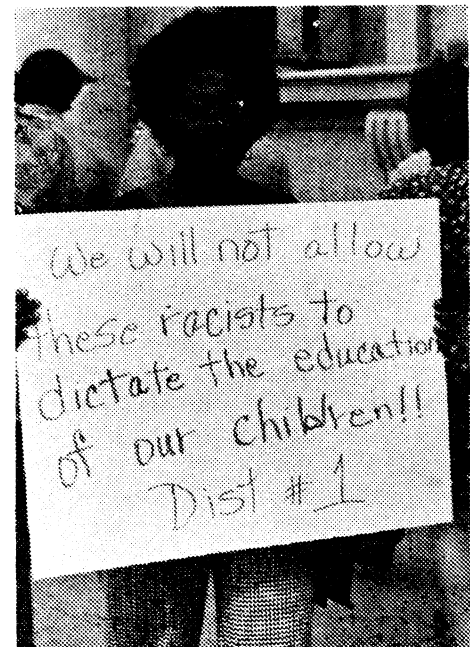 We will not allow
these racists to
dictate the education
of our children!!
Dist # 1